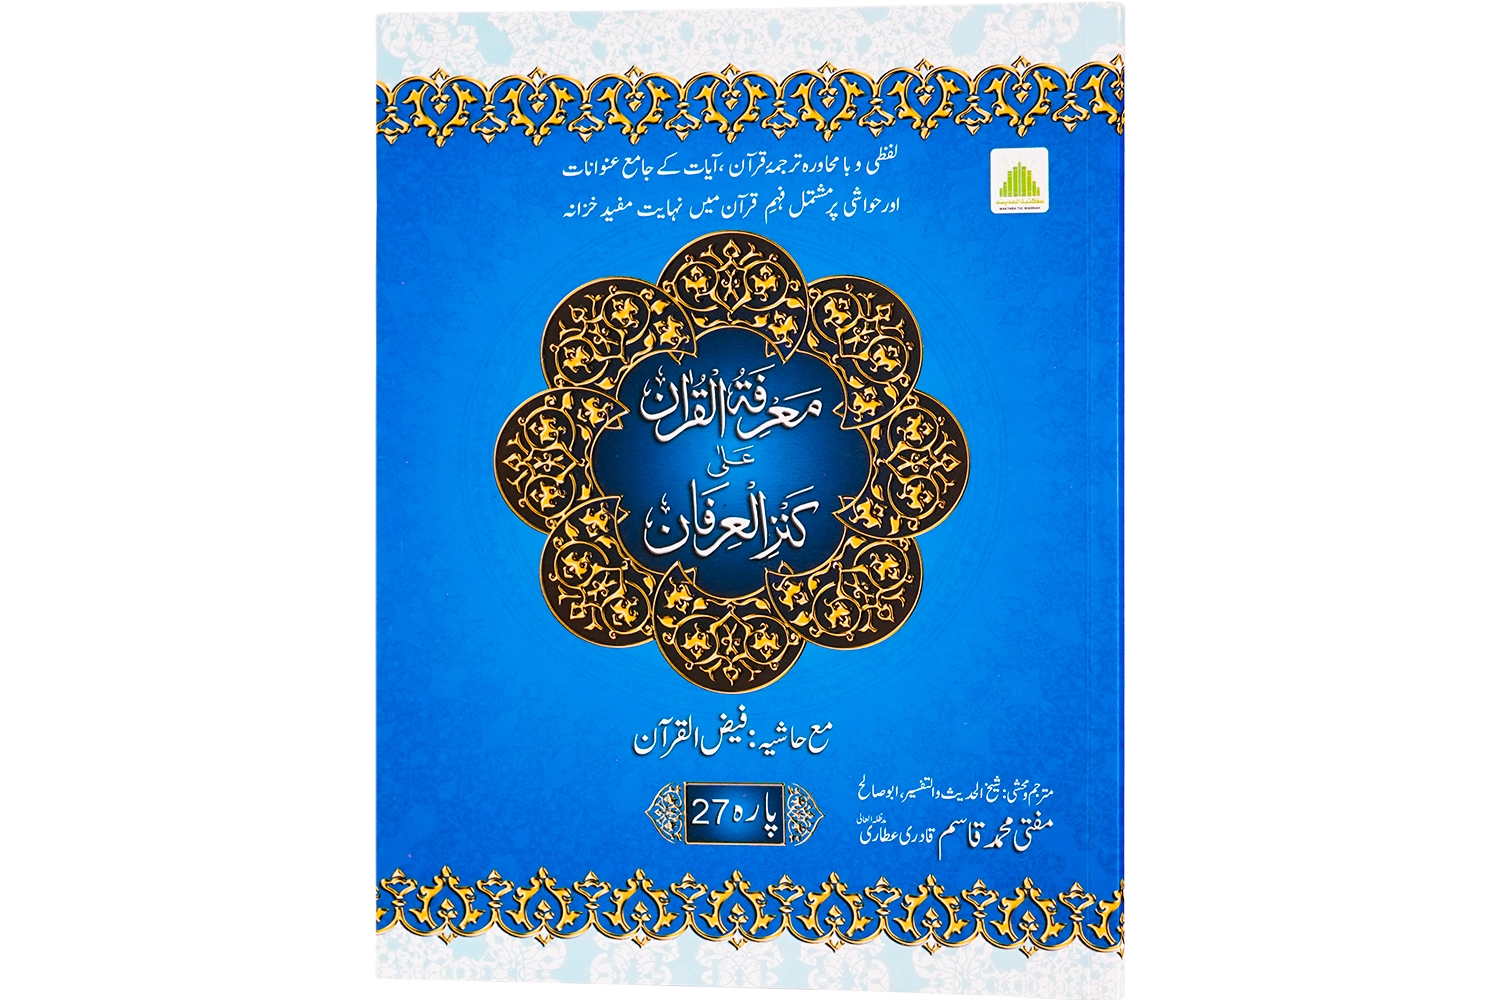 لفظی و بامحاورہ ترجمۂ قرآن ، آیات کے جامع عنوانات
اور حواشی پر مشتمل فہمِ قرآن میں نہایت مفید خزانہ
مکتبۃ المدینہ
MAKTABA TUL MADINAH
مَعْرِفَۃُ الْقُرْاٰن
عَلٰی
کَنْزُ الْعِرفَان
مع حاشیہ: فیض القرآن
پارہ 27
مترجم و محشی: شیخ الحدیث والتفسیر، ابو صالح
مفتی محمد قاسم قادری عطاری مدظلہ العالی